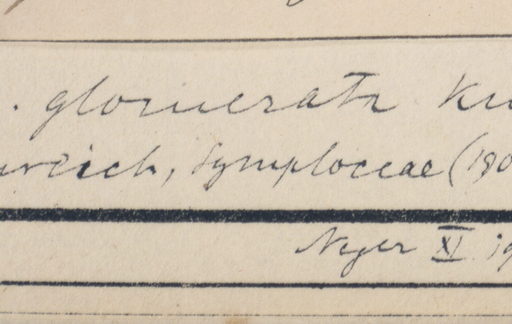 . glomerata Ku
urzich, Symploceae (190
Neger XI. 19